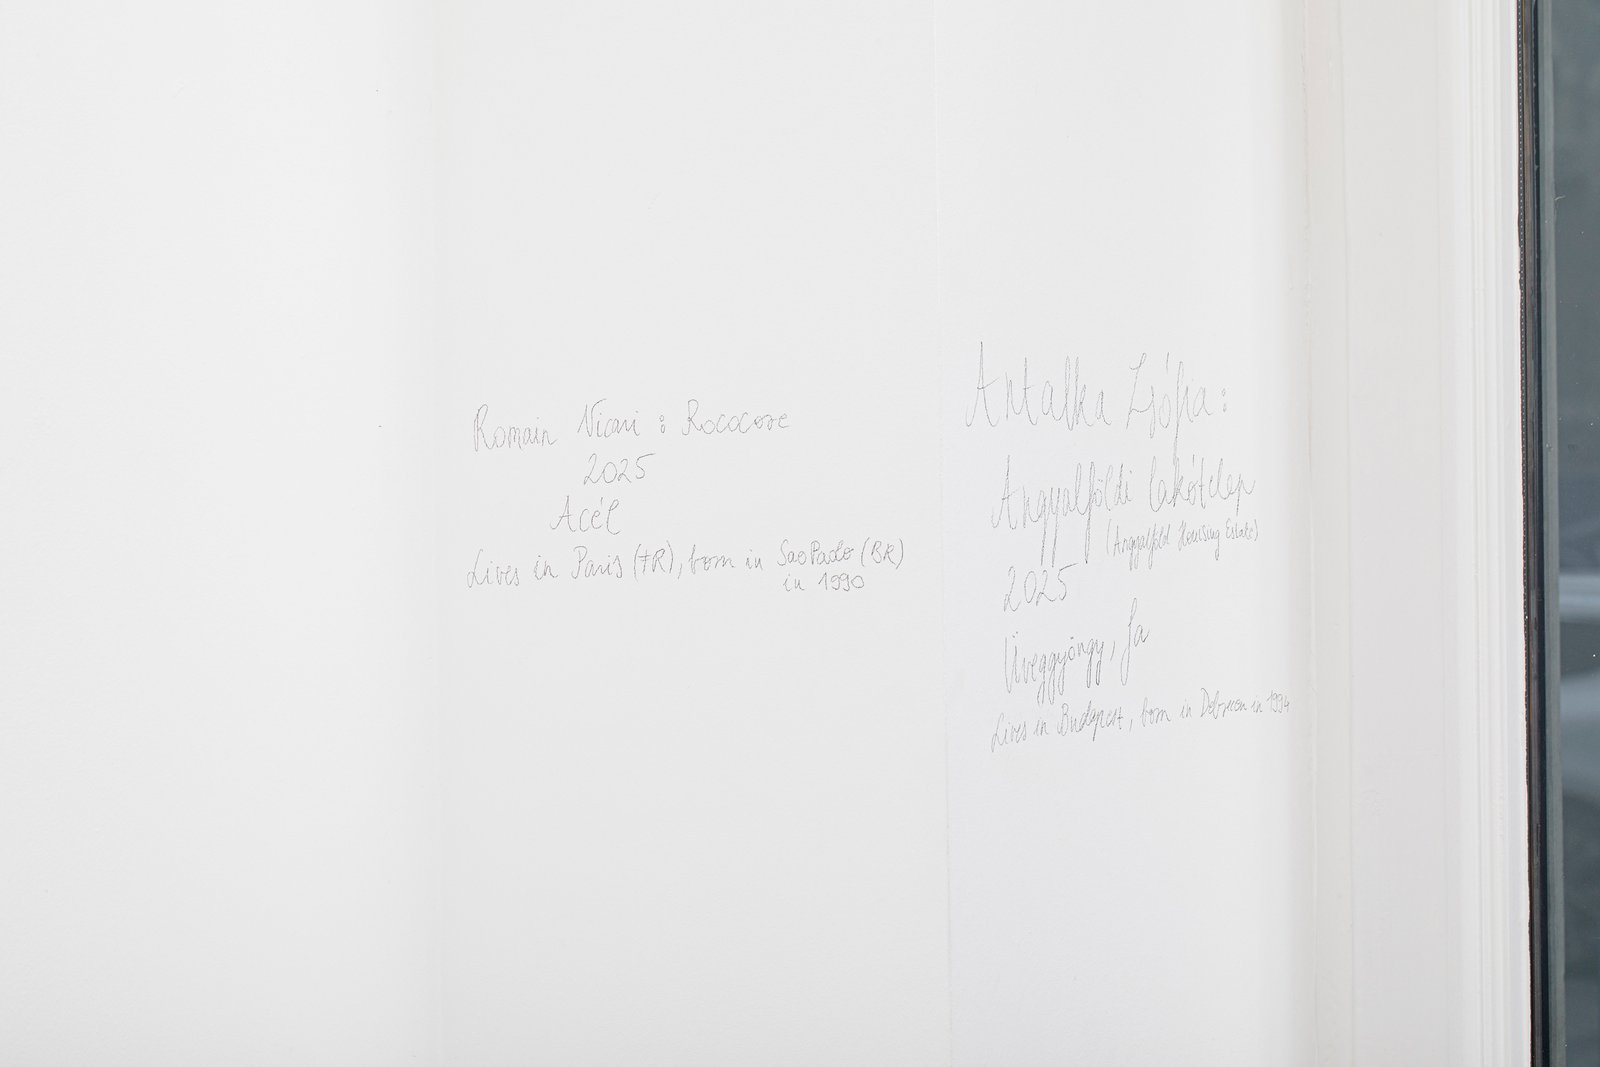 Romain Vicari : Rococore
2025
Acél
Lives in Paris (FR), born in Sao Paolo (BR)
in 1990
Antalka Zsófia:
Angyalföldi lakótelep
(Angyalföld Housing Estate)
2025
Üveggyöngy, fa
Lives in Budapest, born in Debrecen in 1994